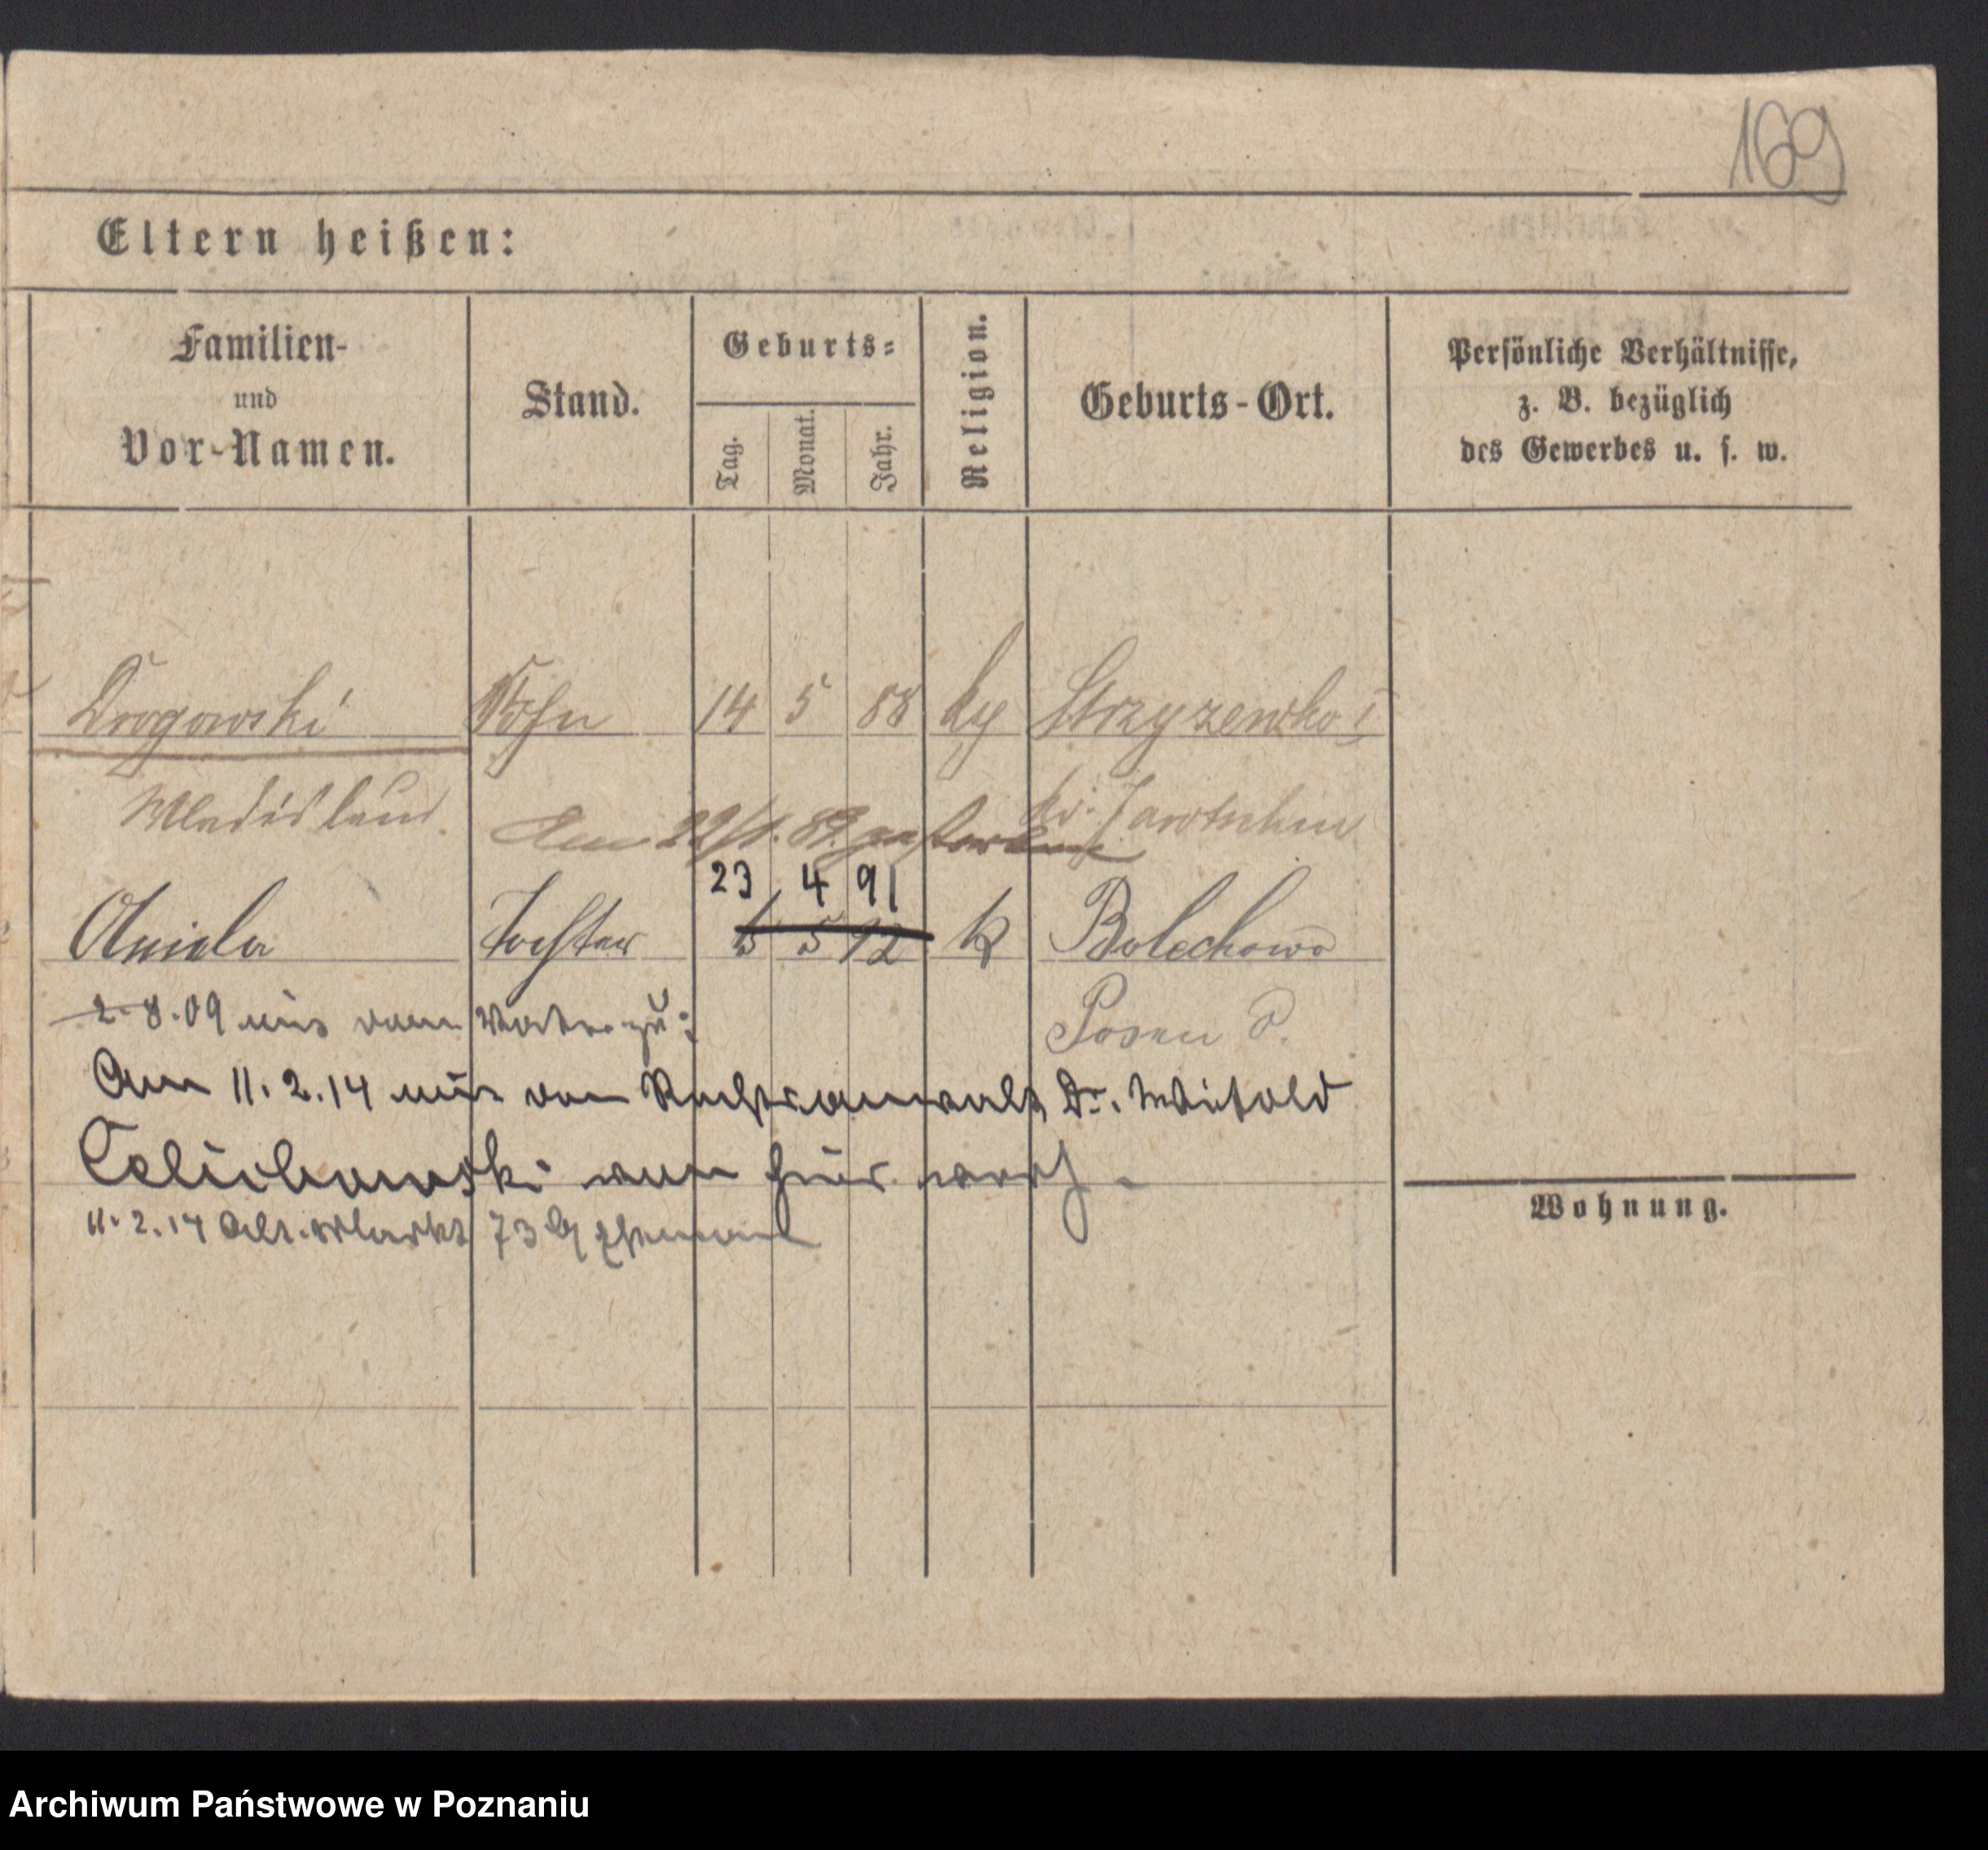 169
Eltern heißen:
Familien-
und
Vor-Namen.
Stand.
Geburts=
Tag.
Monat.
Jahr.
Religion.
Geburts-Ort.
Persönliche Verhältnisse,
z. B. bezüglich
des Gewerbes u. s. w.
Drogowski Sohn 14 5 88 Strzyzewko
Wladislaus Kr. Jarotschin
Am 22/1. 89. gestorben
23 4 91
Aniela Tochter 5 92 k Bolechowo
2.8.09 vom Vater zu: Posen O.
Am 11.2.14 von Rechtsanwalt Dr. Witold
Celichowski
11.2.14 Alt. Markt 73
Wohnung.
Archiwum Państwowe w Poznaniu